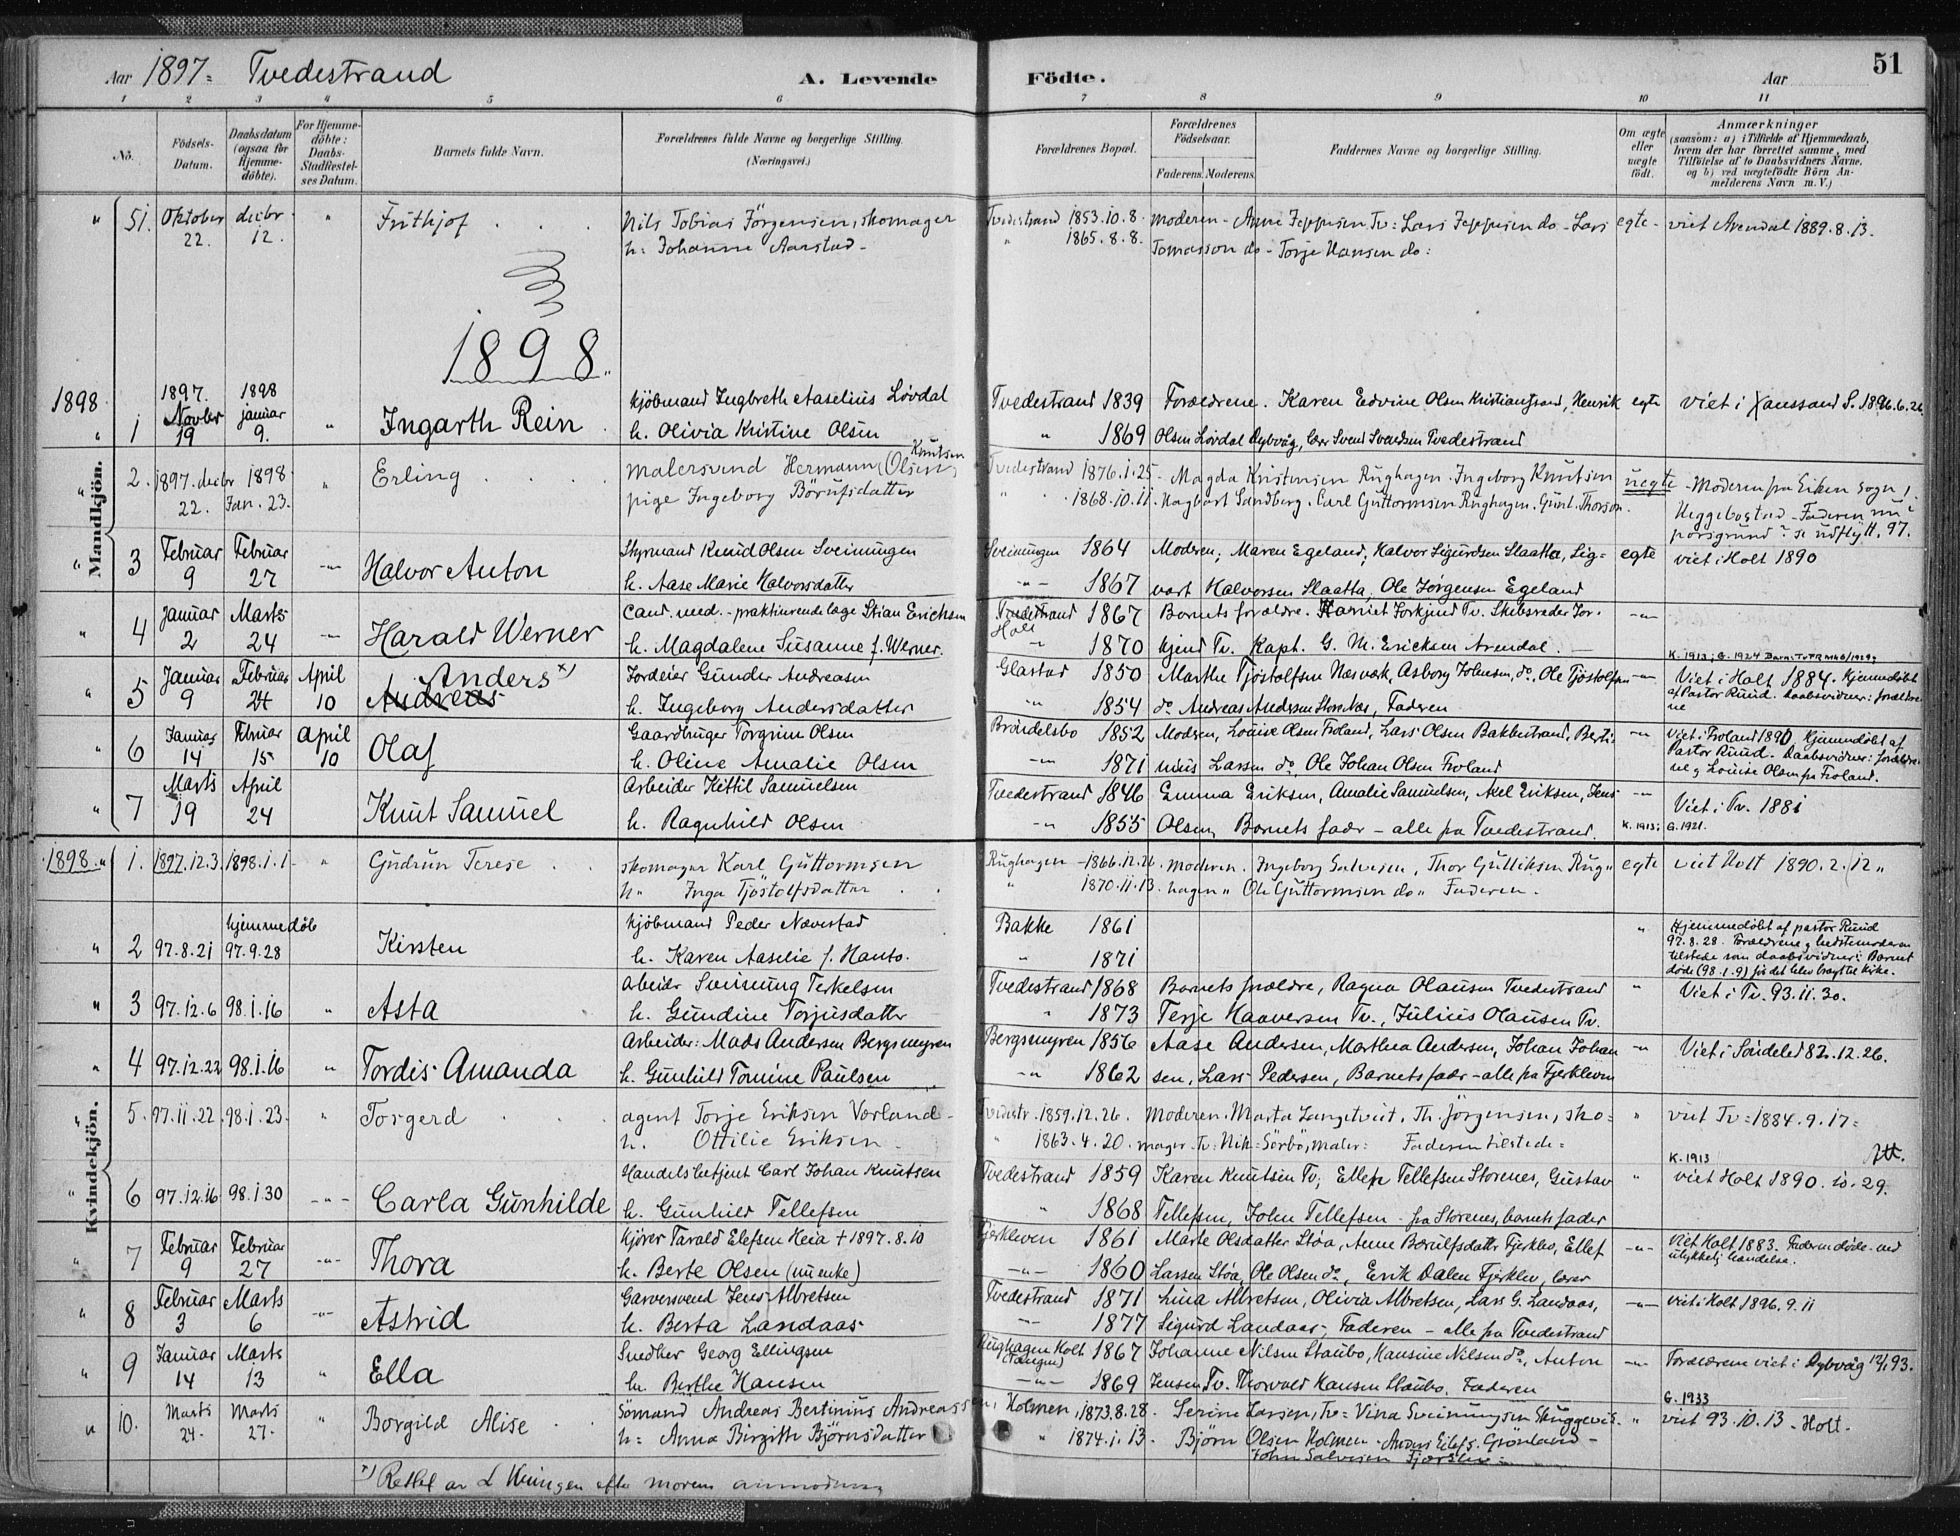 Aar 1897. Tvedestrand A. Levende Födte. Aar 51
1 2 3 4 5 6 7 8 9 10 11
No. Födsels-Datum. Daabsdatum (ogsaa for Hjemme-döbte). For Hjemme-döbte: Daabs-Stadfæstel-ses Datum. Barnets fulde Navn. Forældrenes fulde Navne og borgerlige Stilling. (Næringsvei.) Forældrenes Bopæl. Forældrenes Födselsaar. Faderens. Moderens. Faddernes Navne og borgerlige Stilling. Om ægte eller uægte födt. Anmærkninger (saasom: a) i Tilfælde af Hjemmedaab, hvem der har forrettet samme, med Tilföielse af to Daabsvidners Navne, og b) ved uægtefödte Börn An-melderens Navn m. V.)
" 51. Oktober decbr " Frithjof . . . Nils Tobias Jörgensen, skomager Tvedestrand 1853.10.8. Moderen - Anne Jeppesen Tv: Lars Jeppesen do - Lars egte - viet Arendal 1889.8.13.
22. 12. h: Johanne Aarstad - " 1865.8.8. Tomasson do - Torje Hansen do:
1898.
1898 1897. 1898 Kjöbmand Ingbreth Aaselius Lövdal Tvedestrand 1839 Forældrene. Karen Edvine Olsen Kristianssand, Henrik egte viet i Xanssand S. 1896.6.26
" 1 Novbr januar " Ingarth Rein .
19 9. h. Olivia Kristine Olsen " 1869 Olsen Lövdal Dybvåg, lær Svend Svendsen Tvedestrand
Mandkjön.
" 2. 1897. decbr 1898 " Erling . . . . Malersvend Hermann (Olsen) Knutsen Tvedestrand 1876.1.25 - Magda Kristensen Rughagen. Ingeborg Knutsen uegte - Moderen fra Eiken sogn,
22. Jan. 23. pige Ingeborg Börufsdatter " 1868.10.11. Hagbart Sandberg. Carl Guttormsen Rughagen. Gunt. Thorson. Heggebostad - Faderen nu i porsgrund? se udflytt. 97.
" 3 Februar Februar -"- Halvor Anton Styrmand Knud Olsen Sveinungen Sveinungen 1864 Moderen, Maren Egeland, Halvor Sigurdsen Slaatta, Sig- egte viet i Holt 1890
9 27 h. Aase Marie Halvorsdatter -"- 1867 vart Halvorsen Slaatta, Ole Jørgensen Egeland
" 4 Januar Marts -"- Harald Werner Cand. med. - praktiserende læge Stian Ericksen Tvedestrand Holt 1867 Barnets forældre. Harriet Forkjend Tv. Skibsreder For- -"-
2 24 h. Magdalene Susanne f. Werner. -"- 1870 kjend Tv. Kapt. G. M. Ericksen Arendal. -
K. 1913; G. 1924
" 5 Januar Februar April Anders x) Andreas Jordeier Gunder Andreasen Glastad 1850 Marthe Tjöstolfsen Næsvak, Asborg Johnsen, do, Ole Tjöstolfsen -"- Viet i Holt 1884. Hjemmedöbt af Pastor Ruud. Daabsvidner: foræltrene
9 24 10 h. Ingeborg Andersdatter " 1854 do Andreas Andersen Store Næs, Faderen
" 6 Januar Februar April Olaf Gaardbruger Torgrim Olsen Bröndelsbo 1852 Modren, Louise Olsen Froland, Lars Olsen Bakkestrand, Berti- -"- Viet i Froland 1890 Hjemmedöbt af Pastor Ruud. Daabsvidner: forældrene og Louise Olsen fra Froland.
14 15 10 h. Oline Amalie Olsen -"- 1871 nius Larsen do. Ole Johan Olsen Froland
" 7 Marts April Knut Samuel Arbeider Kittil Samuelsen Tvedestrand 1846 Emma Eriksen, Amalie Samuelsen, Axel Eriksen, Jens -"- Viet i Tv. 1881
19 24 h. Ragnhild Olsen -"- 1855 Olsen, Barnets fader - alle fra Tvedestrand. K. 1913; G. 1921.
1898 " 1. 1897.12.3. 1898.1.1. " Gudrun Terese . . skomager Karl Guttormsen Rughagen - 1866.12.26. Moderen. Ingeborg Salvesen, Thor Gulliksen Rug" egte viet Holt 1890.2.12"
h" Inga Tjöstolfsdatter " 1870.11.13. hagen" Ole Guttormsen do" Faderen.
" 2 97.8.21 hjemmedöb 97.9.28 Kirsten Kjöbmand Peder Nævestad Bakke 1861 " Hjemmedöbt af pastor Ruud 97.8.28. Forældrene og bedstemoderen tilstede som daabsvidner. Barnet döde (98.1.9) för det blev bragt til kirke.
h. Karen Aaselie f. Hanto. " 1871
" 3 97.12.6 98.1.16 " Asta Abeidr Sveinung Terkelsen Tvedestrand 1868 Barnets forældre, Ragna Olausen Tvedestrand " Viet i Tv. 93.11.30.
h. Gundine Torjusdatter " 1873 Terje Haaversen Tv., Julius Olausen Tv.
" 4 97.12.22 98.1.16 " Tordis Amanda Arbeider: Mads Andersen Bergsmyren Bergsmyren 1856 Aase Andersen, Marthea Andersen, Johan Johan -"- Viet i Söndeled 82.12.26.
h. Gunhild Tomine Paulsen -"- 1862 sen, Lars Pedersen, Barnets fadr - alle fra Fjerkleven
Kvindekjön.
" 5. 97.11.22. 98.1.23. " Torgerd . . . agent Torje Eriksen Vorland - Tvedestr. 1859.12.26. Moderen. Marta Langetveit. Th. Jörgensen, sko= " viet Tv = 1884.9.17=
h. Ottilie Eriksen - " 1863.4.20. mager. Tv: Nik= Sörbö, maler: Faderen tilstede=
K. 1913
" 6 97.12.16 98.1.30 -"- Carla Gunhilde Handelsbetjent Carl Johan Knutsen Tvedestrand 1859 Karen Knutsen Tv; Ellef Tellefsen Storenes, Gustav " viet Holt 1890.10.29.
h. Gunhild Tellefsen " 1868 Tellefsen, John Tellefsen fra Storenes, barnets fader
" 7 Februar Februar -"- Thora Kjörer Tarald Elefsen Heia + 1897.8.10 Fjerkleven 1861 Marte Olsdatter Stöa, Anne Børulfsdattr Fjerklev, Ellef -"- Viet Holt 1883. Faderen döde ved ulykkelig hændelse.
9 27 h. Berte Olsen (nu enke) -"- 1860 Larsen Stöa, Ole Olsen do, Erik Dalen Fjerklev, lærer
" 8 Februar Marts -"- Astrid Garversvend Jens Albretsen Tvedestrand 1871 Lina Albretsen, Olivia Albretsen, Lars G. Landaas, -"- viet i Holt 1896.9.11
3 6 h. Berta Landaas - -"- 1877 Sigurd Landaas, Faderen - alle fra Tvedestrand
" 9 Januar Marts " Ella Snedker Georg Ellingsen Rughagen Holt (Tangen) 1867 Johanne Nilsen Staubo, Hansine Nilsen do, Anton -"- Forældrene viet i Dybvåg 12/1 93.
14 13 h. Berthe Hansen -"- 1869 Jensen Tv. Thorvald Hansen Staubo. Faderen
G. 1933
" 10. Marts Marts " Borgild Alise . Sömand Andreas Bertinius Andreassen, Holmen, 1873.8.28. Serine Larsen, Tv= Vina Sveinungsen Skuggevik. " viet 93.10.13 - Holt.
24. 27. h= Anna Birgitte Björnsdatter " 1874.1.13. Björn Olsen Holmen - Anders Eilefs. Grönland -
John Salvesen Fjærklev =
x) Rettet av L Kningen efter morens anmodning